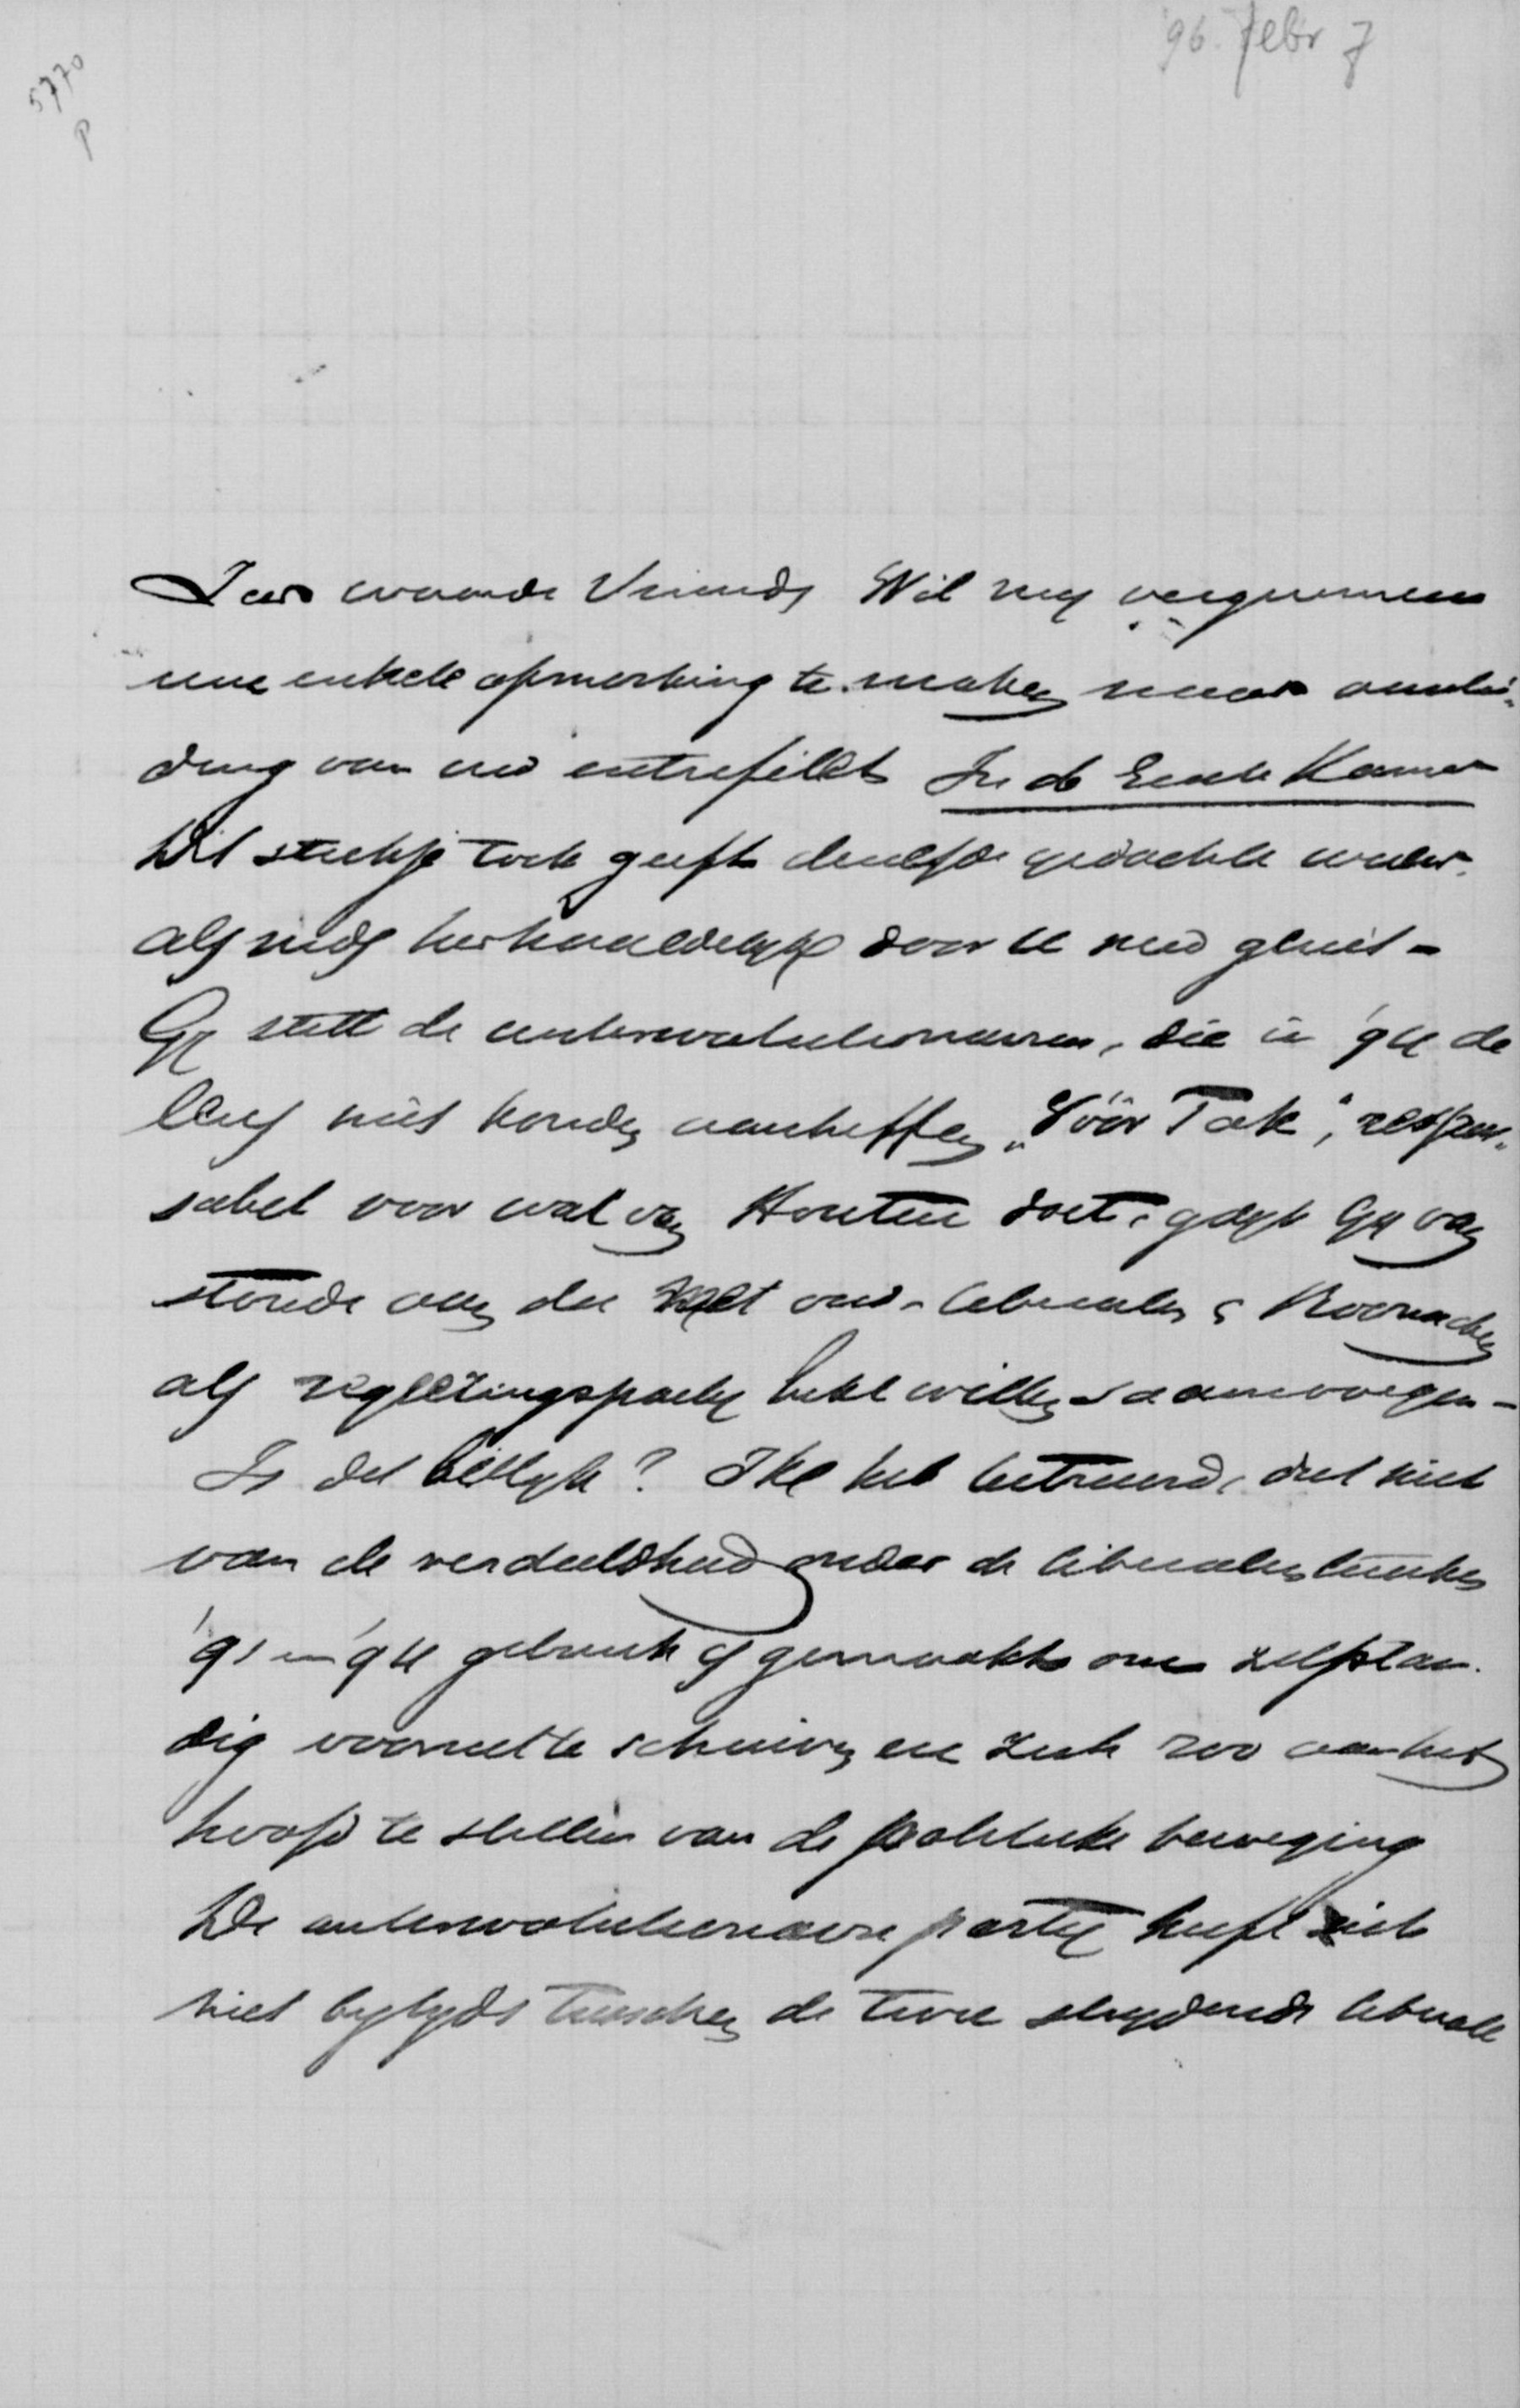 96. Febr 7
5770
P
Zeer waarde Vriend, Wil mij vergunnen
eene enkele opmerking te maken naar aanlei-
ding van uw entrefilet In de Eerste Kamer
Dit stukje toch geeft dezelfde gedachte weder,
als reeds herhaaldelijk door U werd geuit -
Gij stelt de antirevolutionairen, die in '94 de
leus niet konden aanheffen „Vóór Tak", respon-
sabel voor wat van Houten doet, gelijk Gij van
stonde aan der met oud-liberalen & Roomschen
als regeeringspartij hebt willen saamvoegen -
Is dit billijk? Ik heb betreurd, dat niet
van de verdeeldheid onder de liberalen links
'91 en '94 gebruik is gemaakt om zelfstan-
dig vooruit te schuiven en zich zoo aan het
hoofd te stellen van de politieke beweging
De antirevolutionaire partij heeft zich
niet bijtijds tusschen de twee strijdende liberale